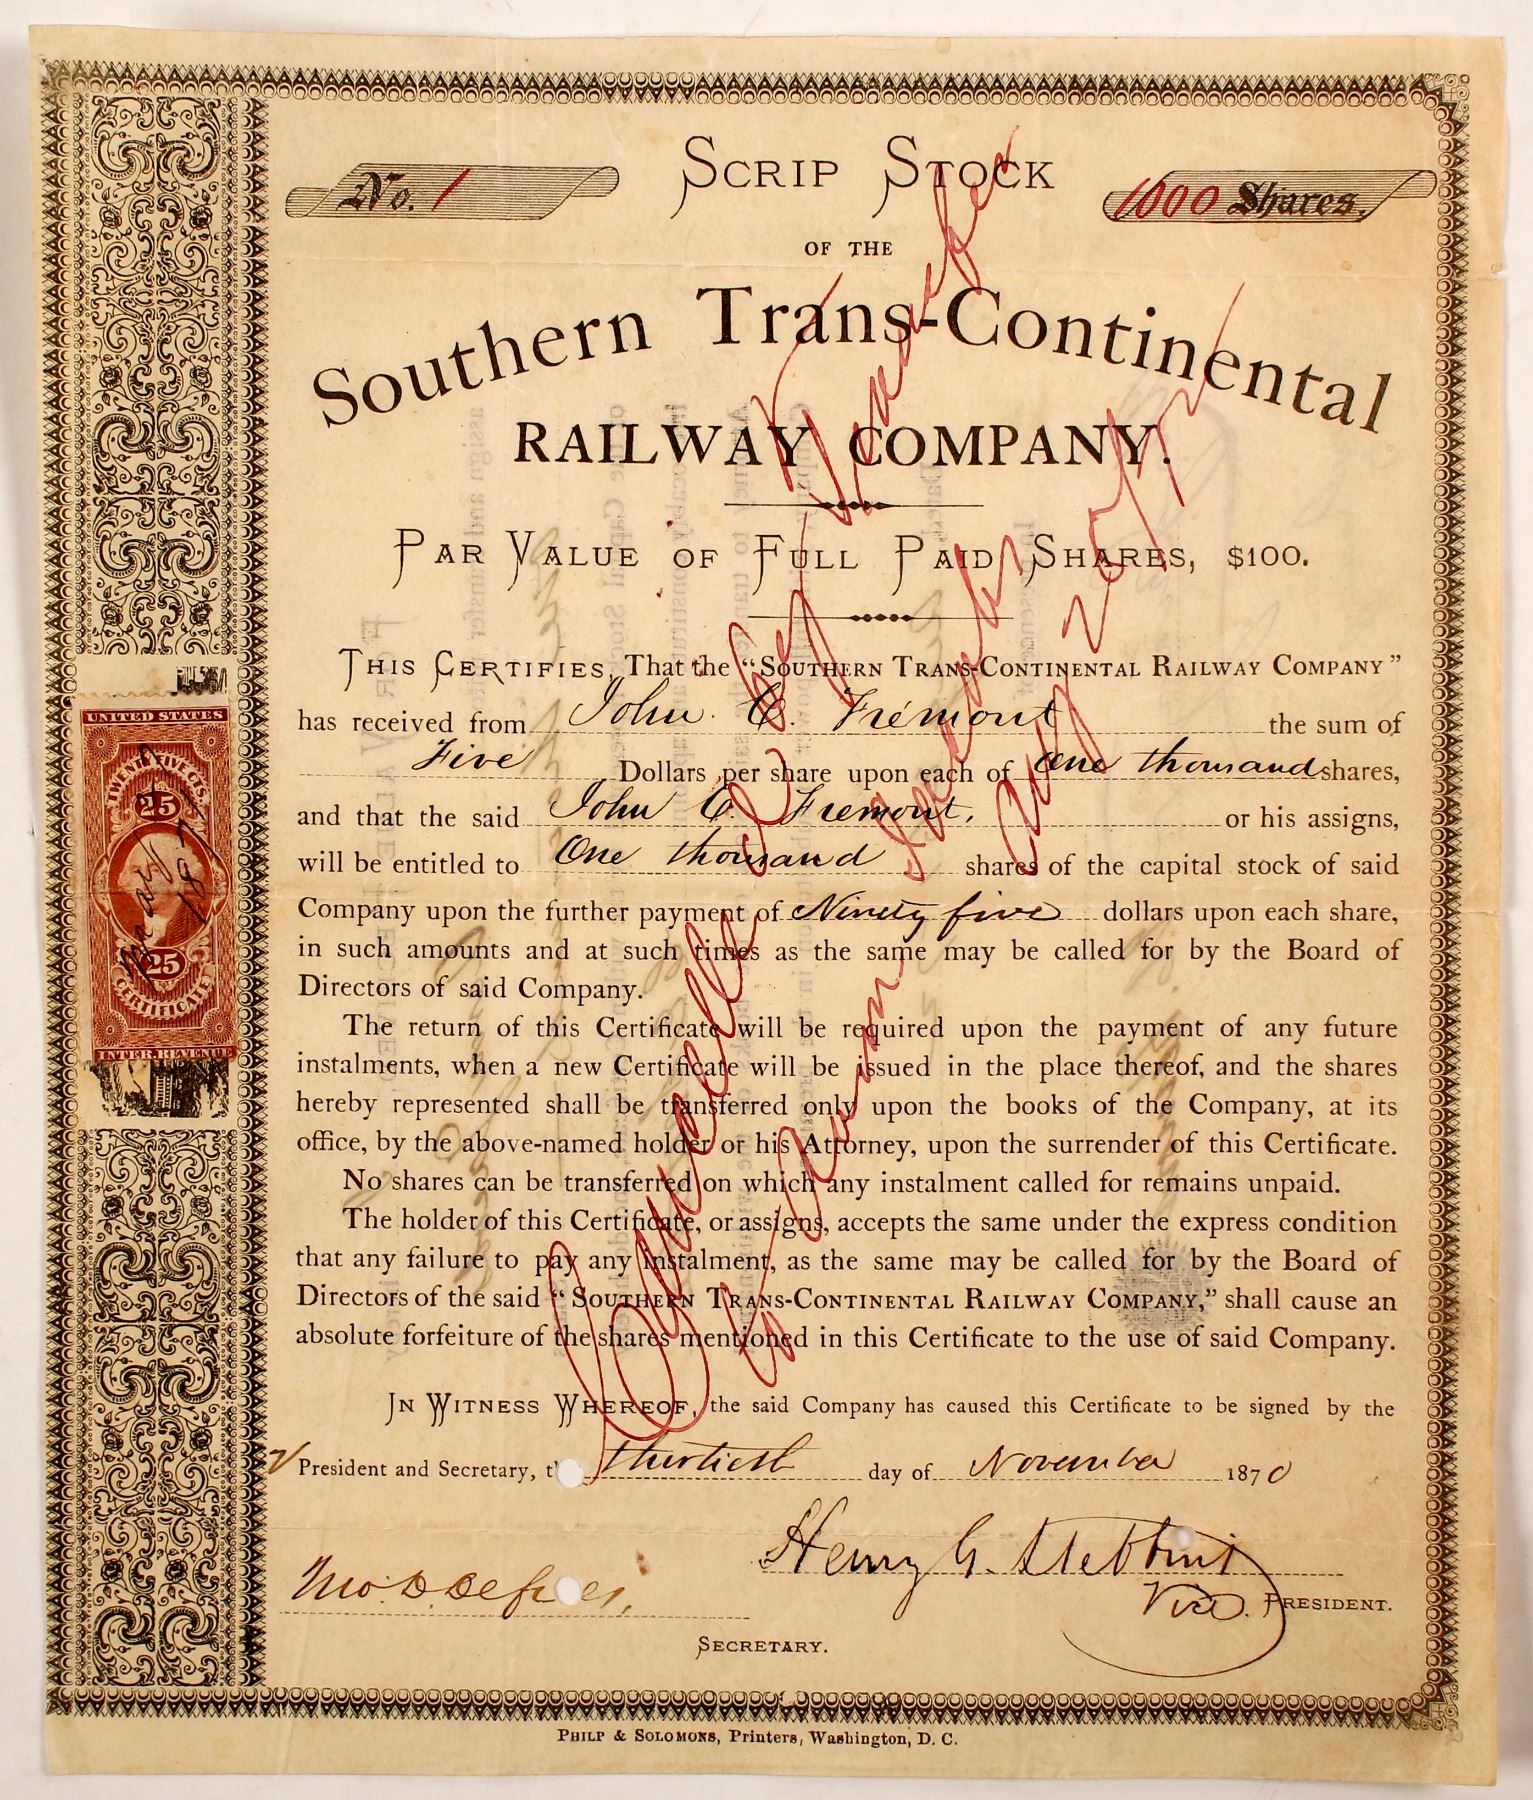 No. 1
SCRIP STOCK
1000 Shares.
OF THE
Southern Trans-Continental
RAILWAY COMPANY.
PAR VALUE OF FULL PAID SHARES, $100.
THIS CERTIFIES, That the "SOUTHERN TRANS-CONTINENTAL RAILWAY COMPANY"
has received from John C. Frémont the sum of
Five Dollars per share upon each of One thousand shares,
and that the said John C. Fremont, or his assigns,
will be entitled to One thousand shares of the capital stock of said
Company upon the further payment of Ninety five dollars upon each share,
in such amounts and at such times as the same may be called for by the Board of
Directors of said Company.
The return of this Certificate will be required upon the payment of any future
instalments, when a new Certificate will be issued in the place thereof, and the shares
hereby represented shall be transferred only upon the books of the Company, at its
office, by the above-named holder or his Attorney, upon the surrender of this Certificate.
No shares can be transferred on which any instalment called for remains unpaid.
The holder of this Certificate, or assigns, accepts the same under the express condition
that any failure to pay any instalment, as the same may be called for by the Board of
Directors of the said "SOUTHERN TRANS-CONTINENTAL RAILWAY COMPANY," shall cause an
absolute forfeiture of the shares mentioned in this Certificate to the use of said Company.
IN WITNESS WHEREOF, the said Company has caused this Certificate to be signed by the
President and Secretary, t thirtieth day of November 1870
Henry G. Stebbins
Vice. PRESIDENT.
SECRETARY.
PHILP & SOLOMONS, Printers, Washington, D. C.
UNITED STATES
TWENTY FIVE CTS.
25
1871
25
CERTIFICATE
INTER. REVENUE
Cancelled by Transfer